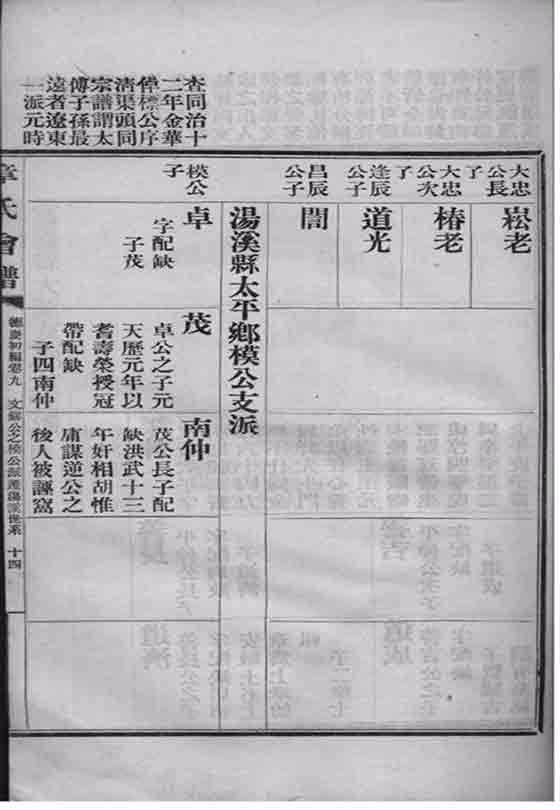 查同治十
二年金華
倬標公序
清渠頭同
宗譜謂太
傅子孫最
遠者遼東
一派元時
大忠
公長
了
崧老
大忠
公次
了
椿老
逢辰
公子
道光
昌辰
公子
誾
湯溪縣太平鄉模公支派
模公
子
卓
字配缺
子茂
茂
卓公之子元
天歷元年以
耆壽榮授冠
帶配缺
子四南仲
南仲
茂公長子配
缺洪武十三
年奸相胡惟
庸謀逆公之
後人被誣竄
章氏會譜
德慶初編卷九
十四